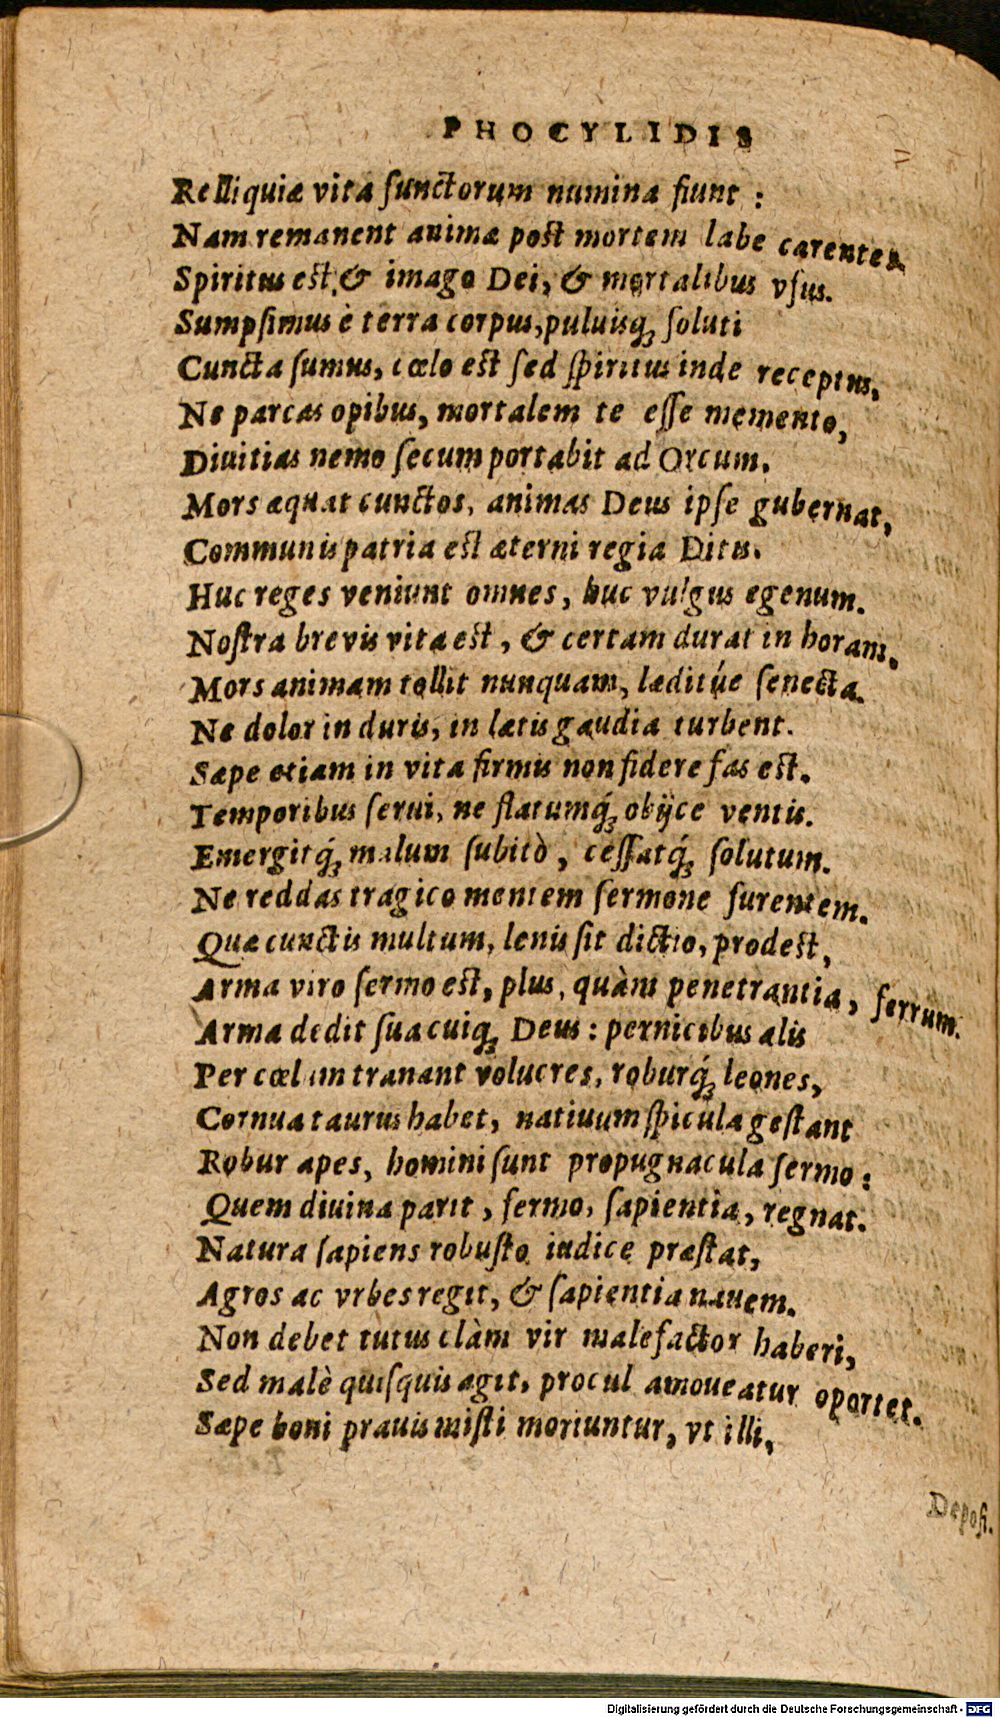 PHOCYLIDIS
Relliquiæ vita functorum numina fiunt :
Nam remanent animæ post mortem labe carentes.
Spiritus est & imago Dei, & mortalibus vsus.
Sumpsimus è terra corpus, puluisq; soluti
Cuncta sumus, cœlo est sed spiritus inde receptus.
Ne parcas opibus, mortalem te esse memento,
Diuitias nemo secum portabit ad Orcum.
Mors æquat cunctos, animas Deus ipse gubernat,
Communis patria est æterni regia Ditis.
Huc reges veniunt omnes, huc vulgus egenum.
Nostra brevis vita est, & certam durat in horam.
Mors animam tollit nunquam, læditúe senecta.
Ne dolor in duris, in lætis gaudia turbent.
Sæpe etiam in vita firmis non fidere fas est.
Temporibus serui, ne flatumq́; obijce ventis.
Emergitq́; malum subitò, cessatq́; solutum.
Ne reddas tragico mentem sermone furentem.
Quæ cunctis multum, lenis sit dictio, prodest,
Arma viro sermo est, plus, quàm penetrantia, ferrum.
Arma dedit sua cuiq; Deus : pernicibus alis
Per cœlum tranant volucres, roburq́; leones,
Cornua taurus habet, natiuum spicula gestant
Robur apes, homini sunt propugnacula sermo :
Quem diuina parit, sermo, sapientia, regnat.
Natura sapiens robusto iudice præstat,
Agros ac vrbes regit, & sapientia nauem.
Non debet tutus clàm vir malefactor haberi,
Sed malè quisquis agit, procul amoueatur oportet.
Sæpe boni prauis misti moriuntur, vt illi,
Deposi.
Digitalisierung gefördert durch die Deutsche Forschungsgemeinschaft - DFG